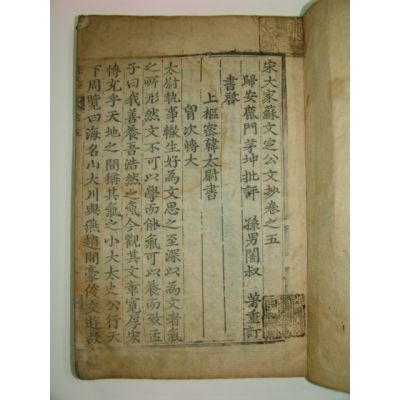 宋大家蘇文定公文抄卷之五
歸安鹿門茅坤批評 孫男闇叔 著重訂
書啓
上樞密韓太尉書
胷次愽大
太尉執事轍生好為文思之至深以為文者氣
之所形然文不可以學而能氣可以養而致孟
子曰我善養吾浩然之氣今觀其文章寬厚宏
愽充乎天地之間稱其氣之小大太史公行天
下周覽四海名山大川與燕趙間豪俊交遊故